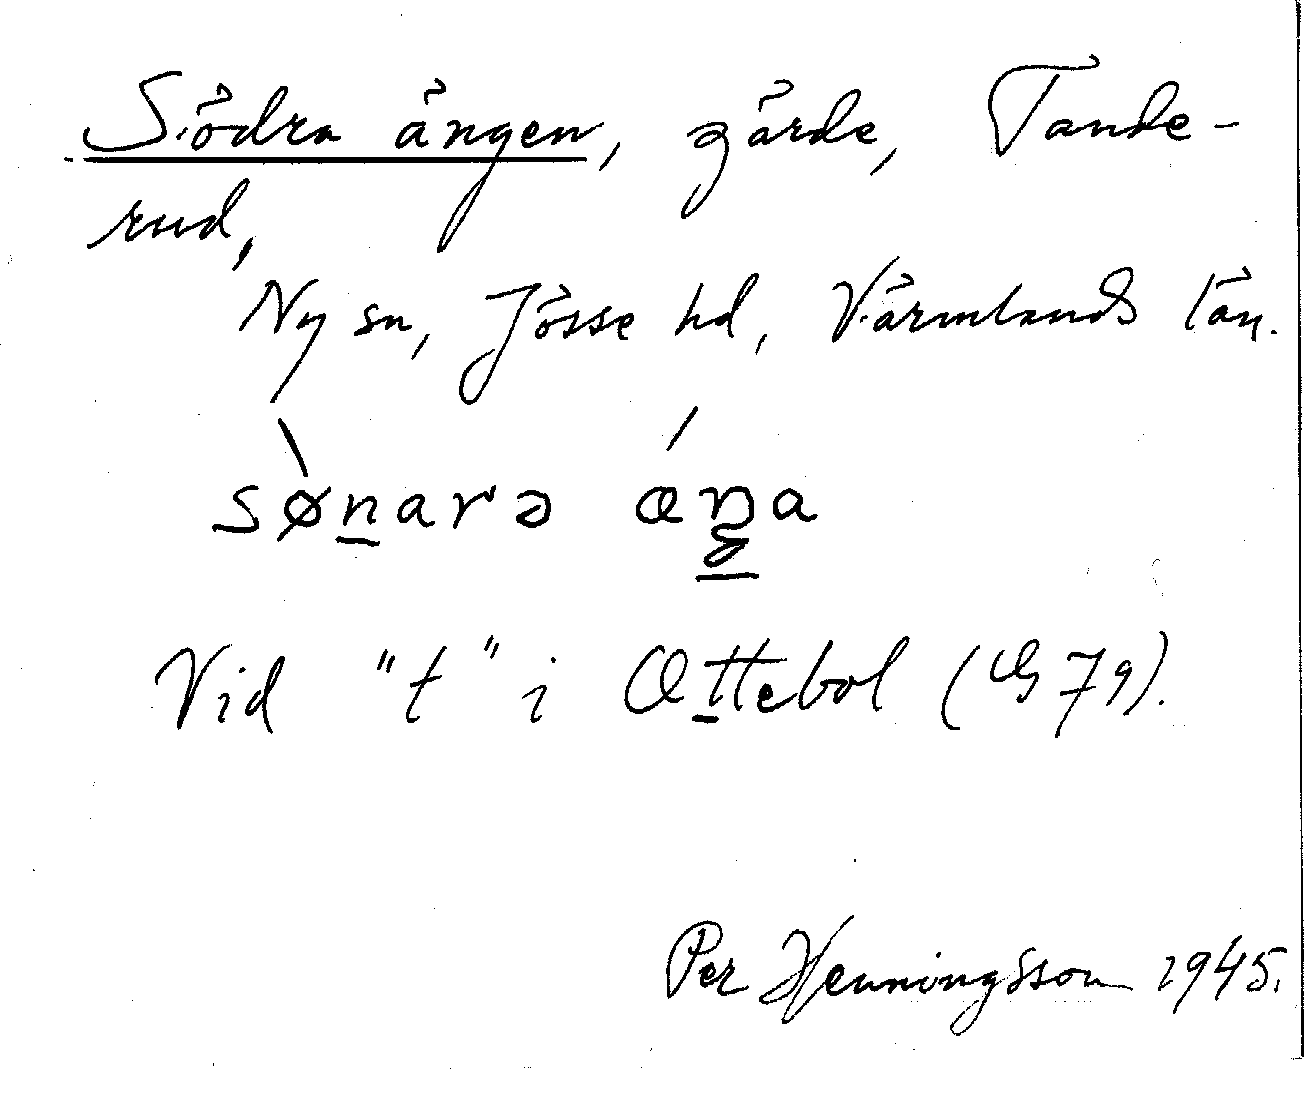 Södra ängen, gärde, Tande-
rud,
Ny sn, Jösse hd, Värmlands län.
sø̀narə áŋa
Vid "t" i Ottebol (G 79).
Per Henningsson 1945.